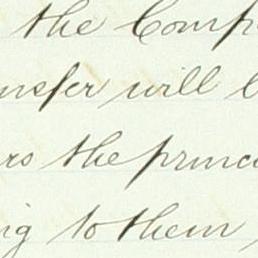 the Comp
nsfer will b
rs the princ
ng to them